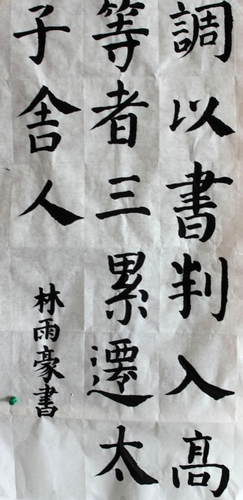 調以書判入高
等者三累遷太
子舎人
林雨豪書